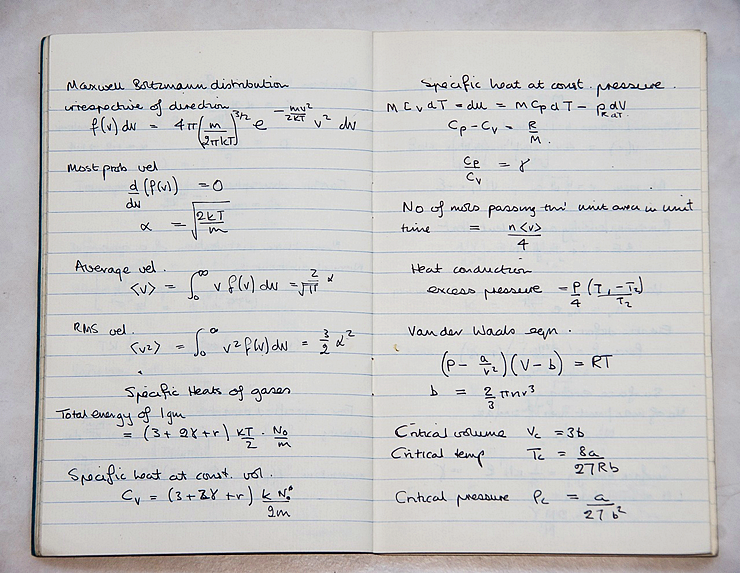 Maxwell Boltzmann distribution
irrespective of direction
f(v) dv = 4π(m/2πkT)^3/2 e^-mv²/2kT v² dv
Most prob vel
d/dv (f(v)) = 0
α = √(2kT/m)
Average vel.
<v> = ∫₀^∞ v f(v) dv = 2/√π α
RMS vel.
<v²> = ∫₀^∞ v² f(v) dv = 3/2 α²
Specific Heats of gases
Total energy of 1gm
= (3 + 2γ + r) kT/2 · N₀/m
Specific heat at const. vol.
Cv = (3 + 2γ + r) k N₀/2m
Specific heat at const. pressure.
M Cv dT = du = M Cp dT - p dV
Cp - Cv = R/M.
Cp/Cv = γ
No of mols passing thro' unit area in unit
time = n<v>/4
Heat conduction
excess pressure = P/4 (T₁ - T₂)/T₂
Van der Waals eqn.
(P - a/v²)(V - b) = RT
b = 2/3 πnr³
Critical volume Vc = 3b
Critical temp Tc = 8a/27Rb
Critical pressure Pc = a/27b²